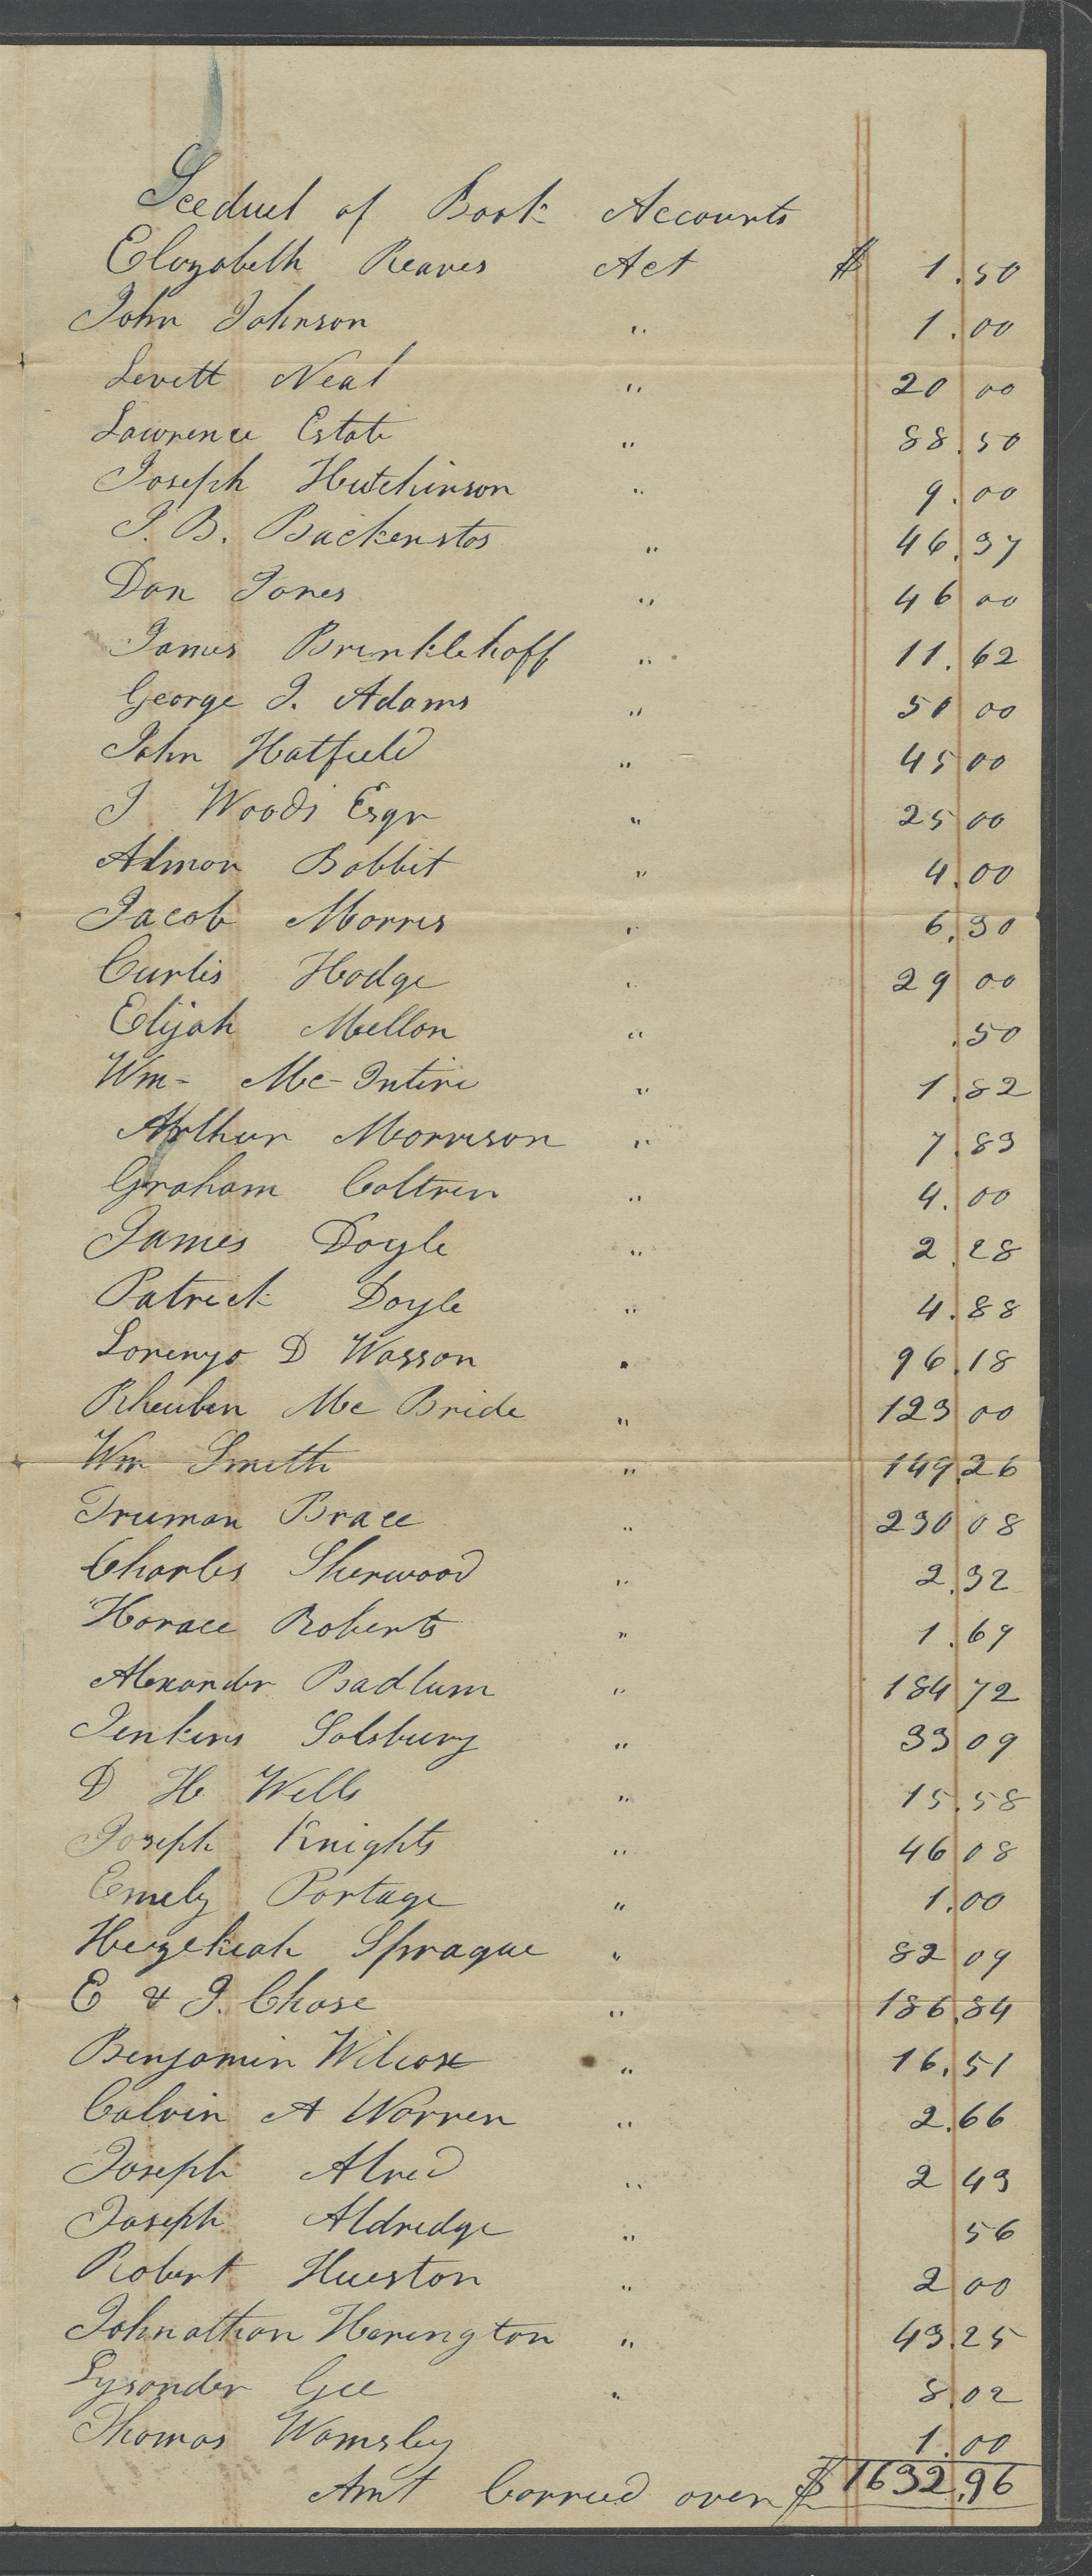 Sceduel of Book Accounts
Elizabeth Reaves Act $ 1.50
John Johnson " 1.00
Levett Neal " 20 00
Lawrence Estate " 88.50
Joseph Hutchinson " 9.00
J. B. Backenstos " 46.37
Dan Jones " 46 00
James Brinklehoff " 11.62
George J. Adams " 50 00
John Hatfield " 45 00
J Woods Esqr " 25 00
Almon Babbit " 4.00
Jacob Morris " 6.30
Curtis Hodge " 29 00
Elijah Mellon " .50
Wm- Mc-Intire " 1.82
Arthur Morrison " 7.83
Graham Coltren " 4.00
James Doyle " 2.28
Patrick Doyle " 4.88
Lorenzo D Wasson " 96.18
Rheuben Mc Bride " 123 00
Wm Smith " 149.26
Truman Brace " 230 08
Charles Sherwood " 2.32
Horace Roberts " 1.69
Alexander Badlum " 184 72
Jenkins Salsbury " 33 09
D H Wells " 15.58
Joseph Knights " 46 08
Emely Portage " 1.00
Hezekiah Sprague " 82 09
E & I. Chase " 186.84
Benjamin Wilcox " 16.51
Calvin A Warren " 2.66
Joseph Alred " 2 43
Joseph Aldredge " 56
Robert Hueston " 2 00
Johnathan Harington " 43.25
Lysander Gee " 8.02
Thomas Wamsley 1.00
Amt Carried over $ 1632.96